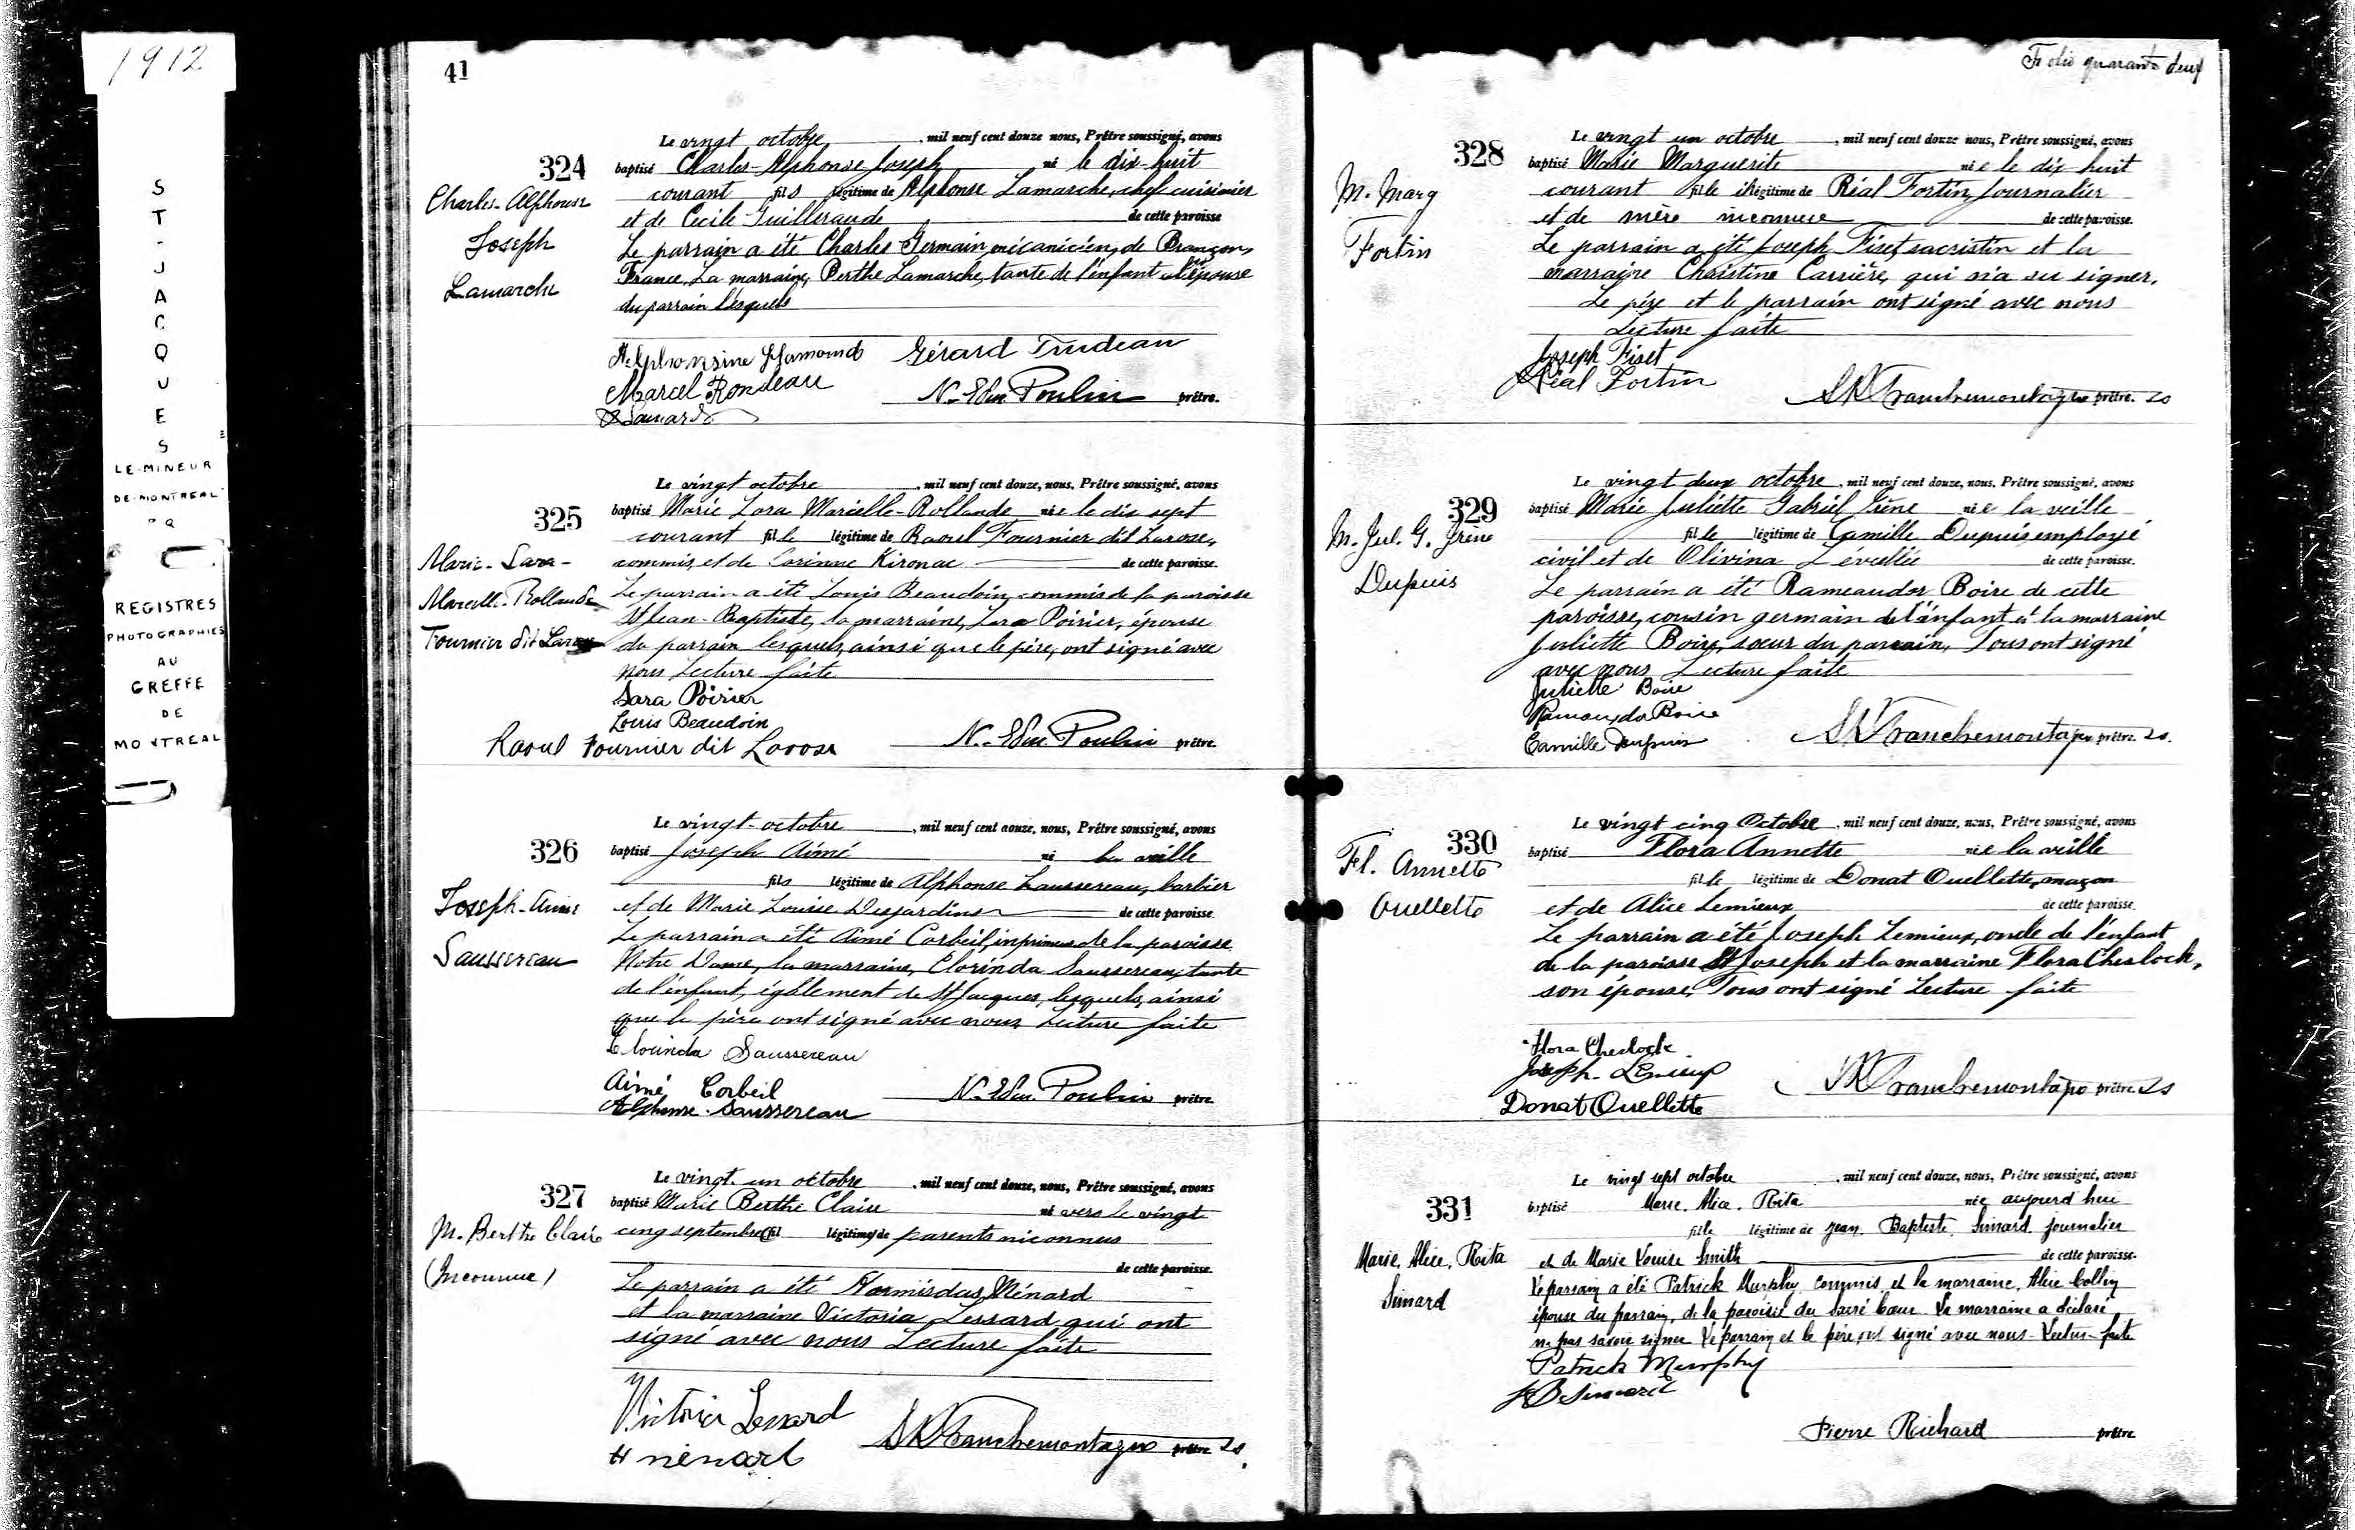 1912
ST-JACQUES
LE-MINEUR
DE-MONTREAL
P Q
REGISTRES
PHOTOGRAPHIES
AU
GREFFE
DE
MONTREAL
41
324
Charles-Alphonse
Joseph
Lamarche
Le vingt octobre, mil neuf cent douze nous, Prêtre soussigné, avons
baptisé Charles-Alphonse Joseph né le dix-huit
courant fils légitime de Alphonse Lamarche, chef cuisinier
et de Cécile Guilleraude de cette paroisse
Le parrain a été Charles Germain, mécanicien, de
France, La marraine, Berthe Lamarche, tante de l'enfant et épouse
du parrain lesquels
Gérard Trudeau
Marcel Rondeau
N. Edm Poulin prêtre.
325
Marie-Lara-
Marcelle-Rollande
Fournier dit Larose
Le vingt octobre, mil neuf cent douze, nous, Prêtre soussigné, avons
baptisé Marie Lara Marcelle-Rollande née le dix sept
courant fille légitime de Raoul Fournier dit Larose,
commis, et de Corinne Kironac de cette paroisse.
Le parrain a été Louis Beaudoin, commis de la paroisse
St Jean-Baptiste, la marraine, Lara Poirier, épouse
du parrain lesquels, ainsi que le père, ont signé avec
nous Lecture faite
Sara Poirier
Louis Beaudoin
Raoul Fournier dit Larose
N. Edm Poulin prêtre
326
Joseph-Aimé
Saussereau
Le vingt-octobre, mil neuf cent douze, nous, Prêtre soussigné, avons
baptisé Joseph Aimé né la veille
fils légitime de Alphonse Saussereau, barbier
et de Marie Louise Desjardins de cette paroisse
Le parrain a été Aimé Corbeil, imprimeur de la paroisse
Notre Dame, la marraine, Clorinda Saussereau, tante
de l'enfant, également de St Jacques, lesquels, ainsi
que le père ont signé avec nous Lecture faite
Clorinda Saussereau
Aimé Corbeil
Alphonse Saussereau
N. Edm Poulin prêtre
327
M. Berthe Claire
(Inconnue)
Le vingt-un octobre, mil neuf cent douze, nous, Prêtre soussigné, avons
baptisé Marie Berthe Claire né vers le vingt
cinq septembre (fil légitime) de parents inconnus
de cette paroisse
Le parrain a été Hormisdas Ménard
et la marraine Victoria Lessard qui ont
signé avec nous Lecture faite
Victoria Lessard
H menard
Franchemontagne prêtre
Folio quarante deux
328
M. Marg
Fortin
Le vingt un octobre, mil neuf cent douze nous, Prêtre soussigné, avons
baptisé Marie Marguerite née le dix huit
courant fille illégitime de Réal Fortin, journalier
et de mère inconnue de cette paroisse.
Le parrain a été Joseph Fiset, sacristin et la
marraine Christine Carrière, qui n'a su signer.
Le père et le parrain ont signé avec nous
Lecture faite
Joseph Fiset
Réal Fortin
Franchemontagne prêtre.
329
M. Jul. G. Irène
Dupuis
Le vingt deux octobre, mil neuf cent douze, nous, Prêtre soussigné, avons
baptisé Marie Juliette Gabriel Irène née la veille
fille légitime de Camille Dupuis, employé
civil et de Olivina Léveillée de cette paroisse.
Le parrain a été Rameaudor Boire de cette
paroisse, cousin germain de l'enfant et la marraine
Juliette Boire, sœur du parrain. Tous ont signé
avec nous Lecture faite
Juliette Boire
Rameaudor Boire
Camille Dupuis
Franchemontagne prêtre.
330
Fl. Annette
Ouellette
Le vingt cinq Octobre, mil neuf cent douze, nous, Prêtre soussigné, avons
baptisé Flora Annette née la veille
fille légitime de Donat Ouellette, maçon
et de Alice Lemieux de cette paroisse.
Le parrain a été Joseph Lemieux, oncle de l'enfant
de la paroisse St Joseph et la marraine Flora Cheslock,
son épouse. Tous ont signé Lecture faite
Flora Cheslock
Joseph Lemieux
Donat Ouellette
Franchemontagne prêtre
331
Marie, Alice, Rita
Simard
Le vingt sept octobre, mil neuf cent douze, nous, Prêtre soussigné, avons
baptisé Marie, Alice, Rita née aujourd'hui
fille légitime de Jean Baptiste Simard journalier
et de Marie Louise Smith de cette paroisse.
Le parrain a été Patrick Murphy commis et la marraine, Alice Collin
épouse du parrain, de la paroisse du Sacré Cœur. La marraine a déclaré
ne pas savoir signer Le parrain et le père ont signé avec nous. Lecture faite
Patrick Murphy
J B Simard
Pierre Richard prêtre